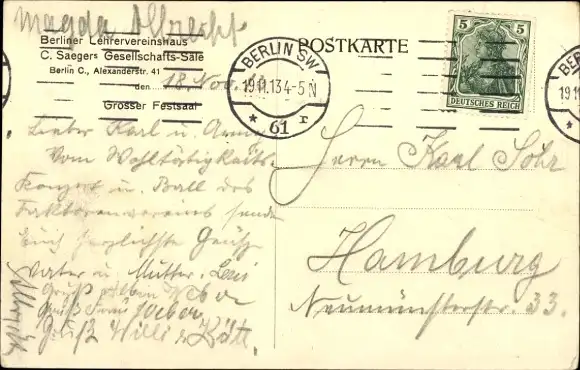 Magda Albrecht
Berliner Lehrervereinshaus
C. Saegers Gesellschafts-Säle
Berlin C., Alexanderstr. 41
den 18. Nov.
Grosser Festsaal
Lieber Karl u. Anna
Vom Wohltätigkeits-
Konzert u. Ball des
Faktorenvereins sende
Euch herzlichste Grüße
Vater u. Mutter.
Gruß
Gruß Frau Weber
Gruß Willi u. Käte
POSTKARTE
BERLIN SW
19.11.13 4-5 N
* 61 r
5 5
DEUTSCHES REICH
BE
19.11
Herrn Karl Söhr
Hamburg
Neumünsterstr. 33.